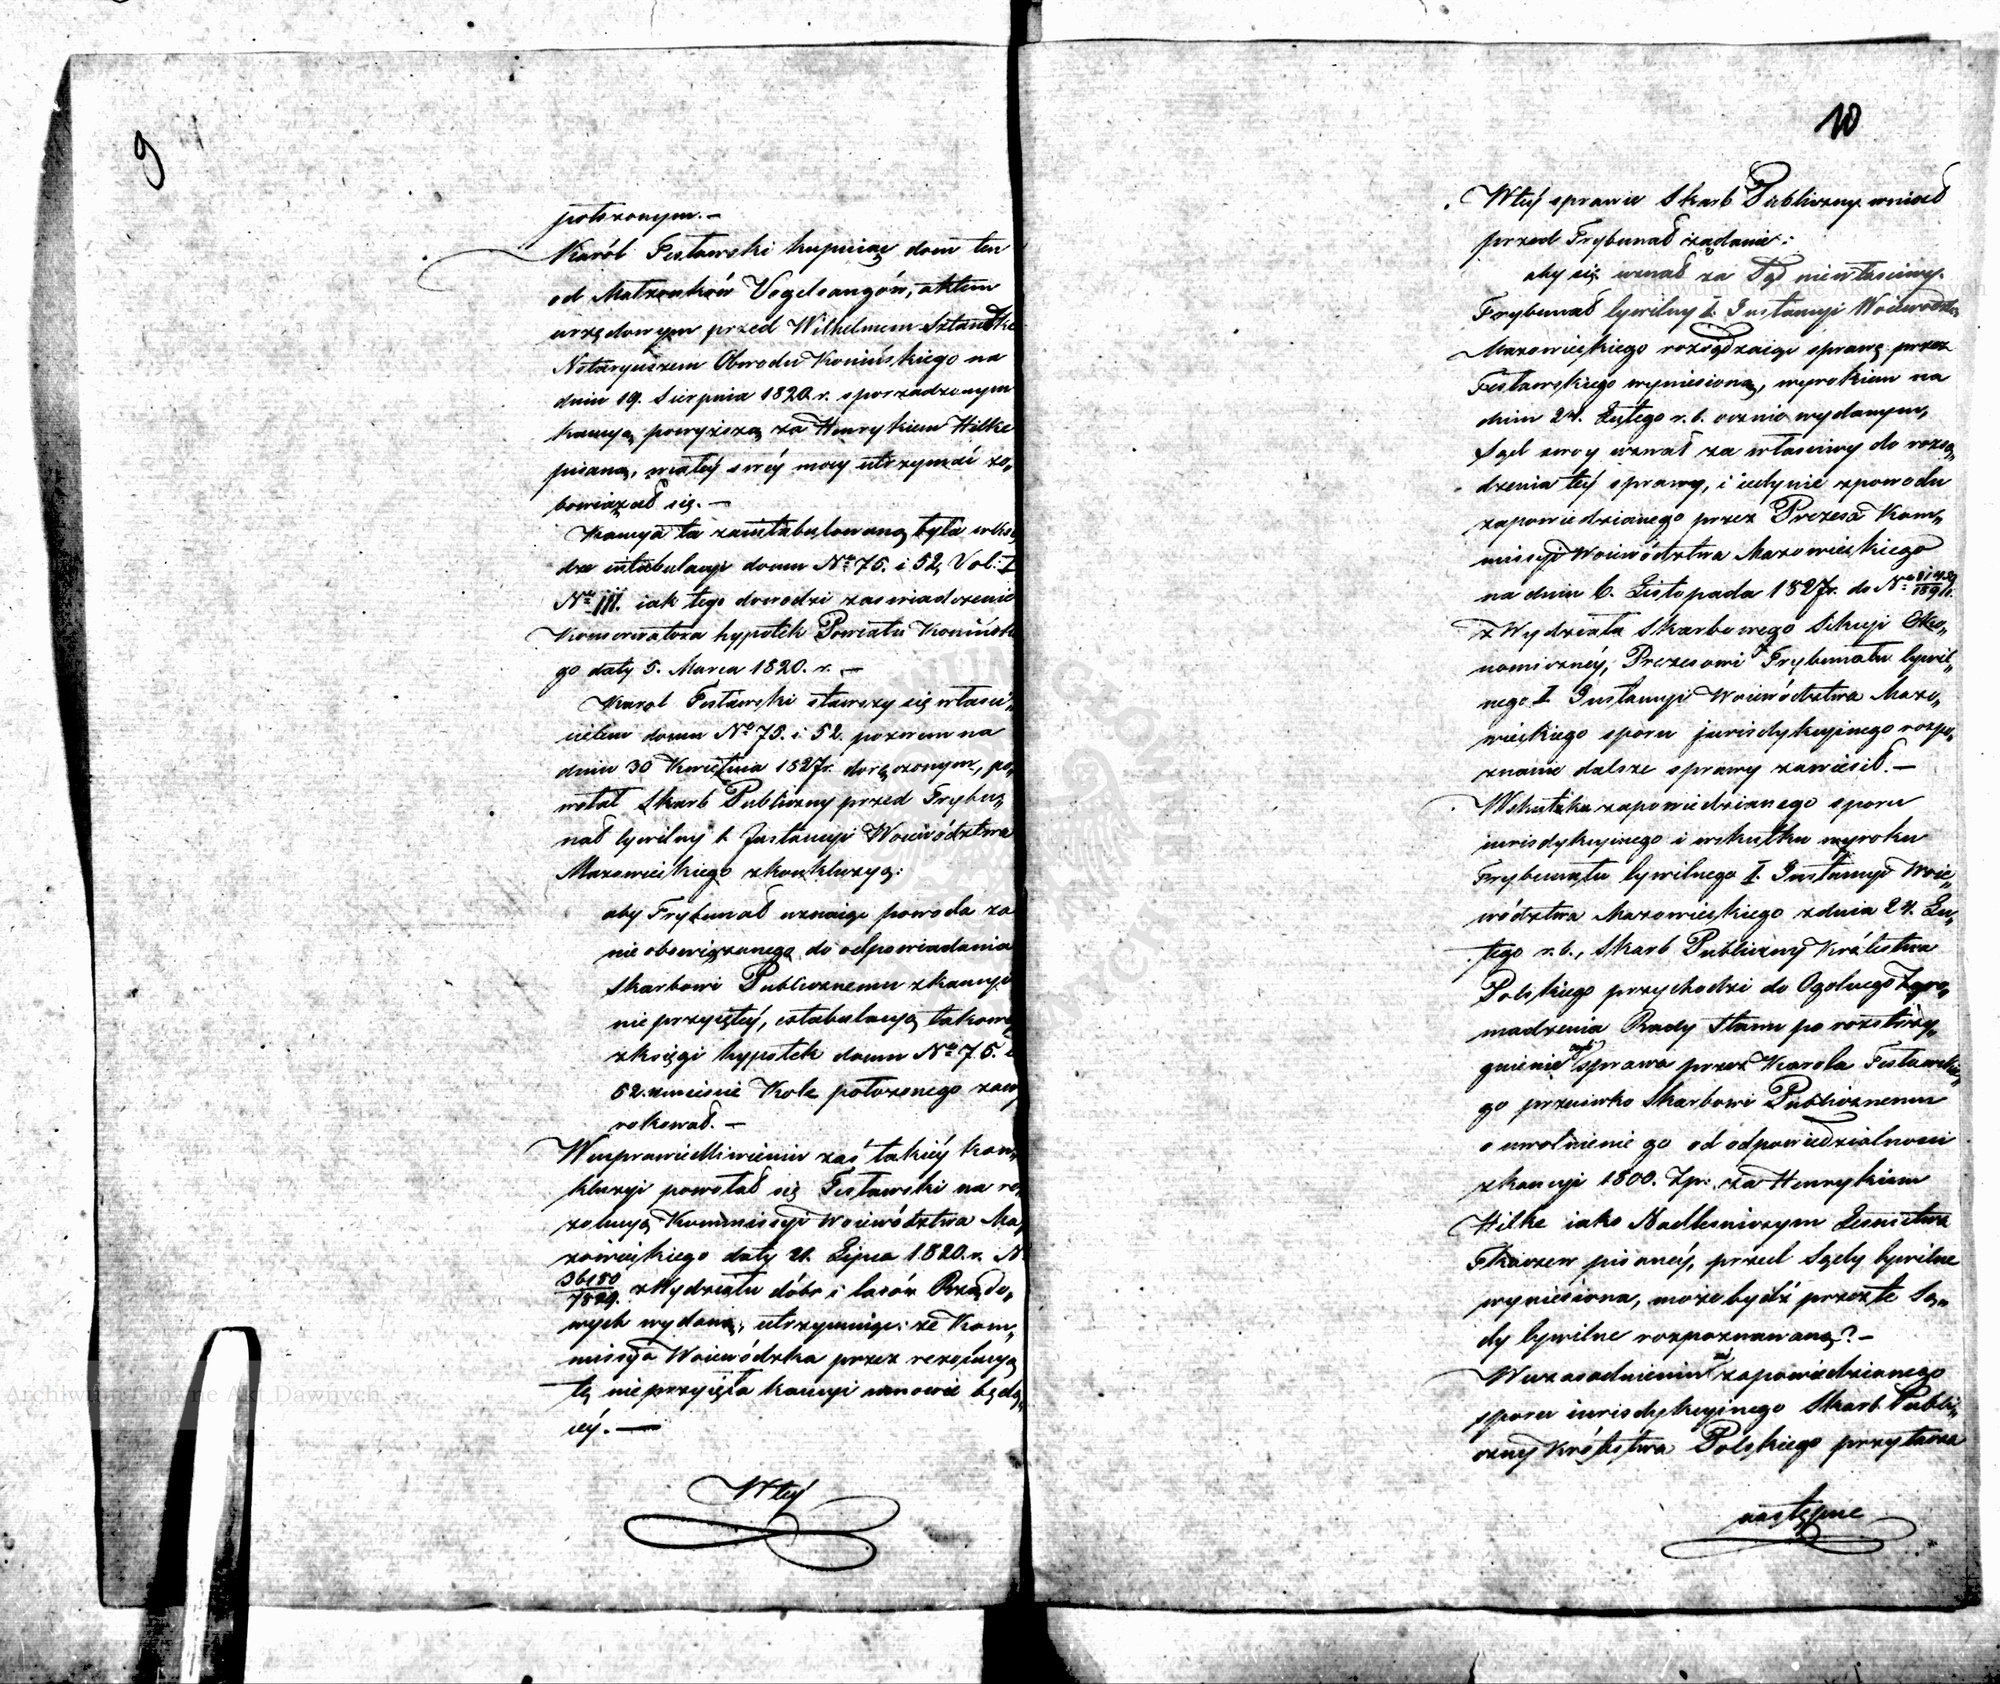 9
położonym. —
Karól Festawski kupuiąc dom ten
od Małżonków Vogelsangów, aktem
urzędowym przed Wilhelmem
Notaryuszem Obwodu Konińskiego na
dniu 19. Sierpnia 1820. r. sporządzonym
kaucyą powyższą za Henrykiem Hilke
pisaną, w całey swéy mocy utrzymać zo„
bowiązał się. —
Kaucya ta zaintabulowaną była w księ
dze intabulacyi domu No 75. i 52, Vol: I
No III. iak tego dowodzi zaświadczenie
Konserwatora hypotek Powiatu Konińsk
go daty 5. Marca 1820. r. —
Karol Festawski stawszy się właści„
cielem domu No 75. i 52. pozwem na
dniu 30 Kwietnia 1827r. doręczonym, po„
wołał Skarb Publiczny przed Trybu„
nał Cywilny I. Instancyi Województwa
Mazowieckiego z konkluzyą:
aby Trybunał uznaiąc powoda za
nie obowiązanego do odpowiadania
Skarbowi Publicznemu z kaucyi
nie przyiętéy, extabulacyą takowéy
z księgi hypotek domu No 75. i
52. w mieście Kole położonego zawy
rokował. —
W usprawiedliwieniu zaś takiéy kon„
kluzyi powołał się Festawski na re„
zolucyą Kommissyi Województwa Ma„
zowieckiego daty 21. Lipca 1820. r. N
36180/7829. z Wydziału dóbr i lasów Rządo„
wych wydaną, utrzymuiąc: że Kom„
missya Wojewódzka przez rezolucyą
tę nie przyięła kaucyi w mowie będą„
céy. —
W téy
10
W téy sprawie Skarb Publiczny wniósł
przed Trybunał żądanie:
aby się uznał za Sąd niewłaściwy.
Trybunał Cywilny I. Instancyi Województwa
Mazowieckiego rozsądzaiąc sprawę przez
Festawskiego wyniesioną, wyrokiem na
dniu 24. Lutego r. b. ocznie wydanym,
Sąd swóy uznał za właściwy do rozsą„
dzenia téy sprawy, i iedynie z powodu
zapowiedzianego przez Prezesa Kom„
missyi Województwa Mazowieckiego
na dniu 6. Listopada 1827r. do No
z Wydziału Skarbowego Sekcyi Eko„
nomicznéy, Prezesowi Trybunału Cywil„
nego I Instancyi Województwa Mazo„
wieckiego sporu jurisdykcyjnego rozpo„
znanie dalsze sprawy zawiesił. —
W skutku zapowiedzianego sporu
iurisdykcyjnego i w skutku wyroku
Trybunału Cywilnego I. Instancyi Woie„
wództwa Mazowieckiego z dnia 24. Lu„
tego r. b., Skarb Publiczny Królestwa
Polskiego przychodzi do Ogólnego Zgro„
madzenia Rady Stanu po rozstrzy„
gnienie czyli sprawa przez Karola Festawskie„
go przeciwko Skarbowi Publicznemu
o uwolnienie go od odpowiedzialności
z kaucyi 1800. Zp. za Henrykiem
Hilke iako Nadleśniczym Leśnictwa
Tkaczew pisanéy, przed Sądy Cywilne
wyniesiona, może bydź przez te Są„
dy Cywilne rozpoznawaną? —
W uzasadnieniu zapowiedzianego
sporu iurisdykcyjnego Skarb Publi„
czny Królestwa Polskiego przytacza
następne
Archiwum Główne Akt Dawnych